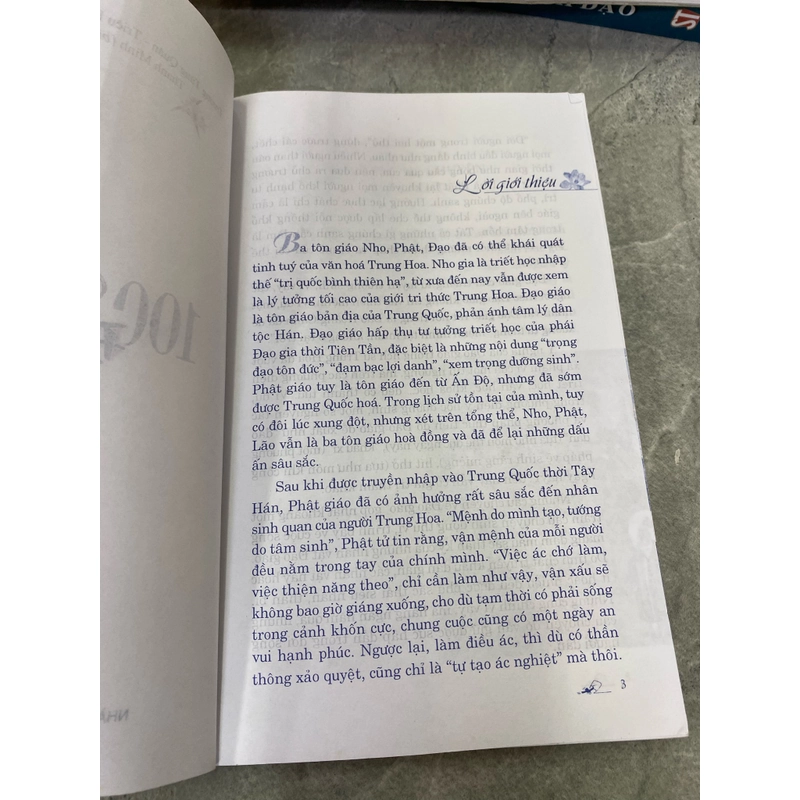 ĐẠO
Lời giới thiệu
Ba tôn giáo Nho, Phật, Đạo đã có thể khái quát
tinh tuý của văn hoá Trung Hoa. Nho gia là triết học nhập
thế “trị quốc bình thiên hạ”, từ xưa đến nay vẫn được xem
là lý tưởng tối cao của giới tri thức Trung Hoa. Đạo giáo
là tôn giáo bản địa của Trung Quốc, phản ánh tâm lý dân
tộc Hán. Đạo giáo hấp thụ tư tưởng triết học của phái
Đạo gia thời Tiên Tần, đặc biệt là những nội dung “trọng
đạo tôn đức”, “đạm bạc lợi danh”, “xem trọng dưỡng sinh”.
Phật giáo tuy là tôn giáo đến từ Ấn Độ, nhưng đã sớm
được Trung Quốc hoá. Trong lịch sử tồn tại của mình, tuy
có đôi lúc xung đột, nhưng xét trên tổng thể, Nho, Phật,
Lão vẫn là ba tôn giáo hoà đồng và đã để lại những dấu
ấn sâu sắc.
Sau khi được truyền nhập vào Trung Quốc thời Tây
Hán, Phật giáo đã có ảnh hưởng rất sâu sắc đến nhân
sinh quan của người Trung Hoa. “Mệnh do mình tạo, tướng
do tâm sinh”, Phật tử tin rằng, vận mệnh của mỗi người
đều nằm trong tay của chính mình. “Việc ác chớ làm,
việc thiện năng theo”, chỉ cần làm như vậy, vận xấu sẽ
không bao giờ giáng xuống, cho dù tạm thời có phải sống
trong cảnh khốn cực, chung cuộc cũng có một ngày an
vui hạnh phúc. Ngược lại, làm điều ác, thì dù có thần
thông xảo quyệt, cũng chỉ là “tự tạo ác nghiệt” mà thôi.
3